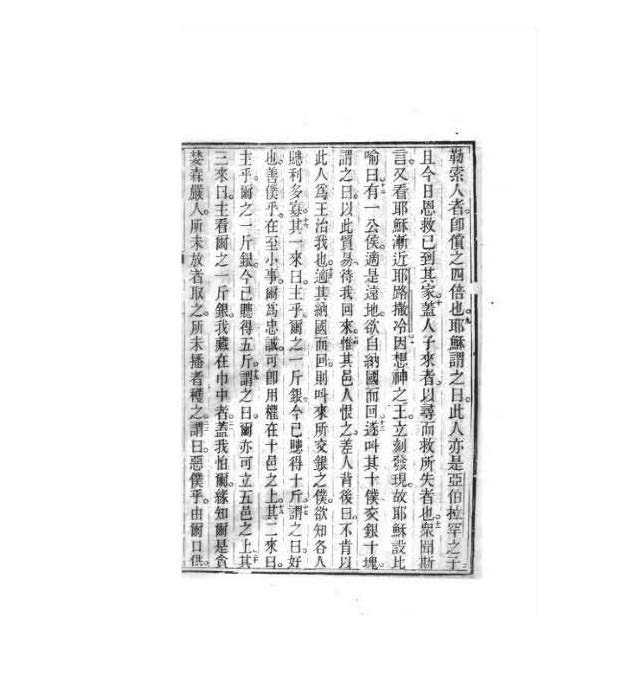 勒索人者。卽償之四倍也。耶穌謂之曰。此人亦是亞伯拉罕之子
且今日恩救已到其家。蓋人子來者。以尋而救所失者也。衆聞斯
言。又看耶穌漸近耶路撒冷。因想神之王立刻發現。故耶穌設比
喻曰。有一公侯。適是遠地。欲自納國而回。遂叫其十僕交銀十塊。
謂之曰。以此貿易待我回來。惟其邑人恨之。差人背後曰。不肯以
此人爲王治我也。適其納國而回。則叫來所交銀之僕。欲知各人
賺利多寡。其一來曰。主乎。爾之一斤銀。今已賺得十斤。謂之曰。好
也。善僕乎。在至小事爾爲忠誠。可卽用權在十邑之上。其二來曰。
主乎。爾之一斤銀。今已賺得五斤。謂之曰。爾亦可立五邑之上。其
三來曰。主看爾之一斤銀。我藏在巾中者。蓋我怕爾。緣知爾是貪
婪森嚴人。所未放者取之。所未播者穫之。謂曰。惡僕乎。由爾口供。